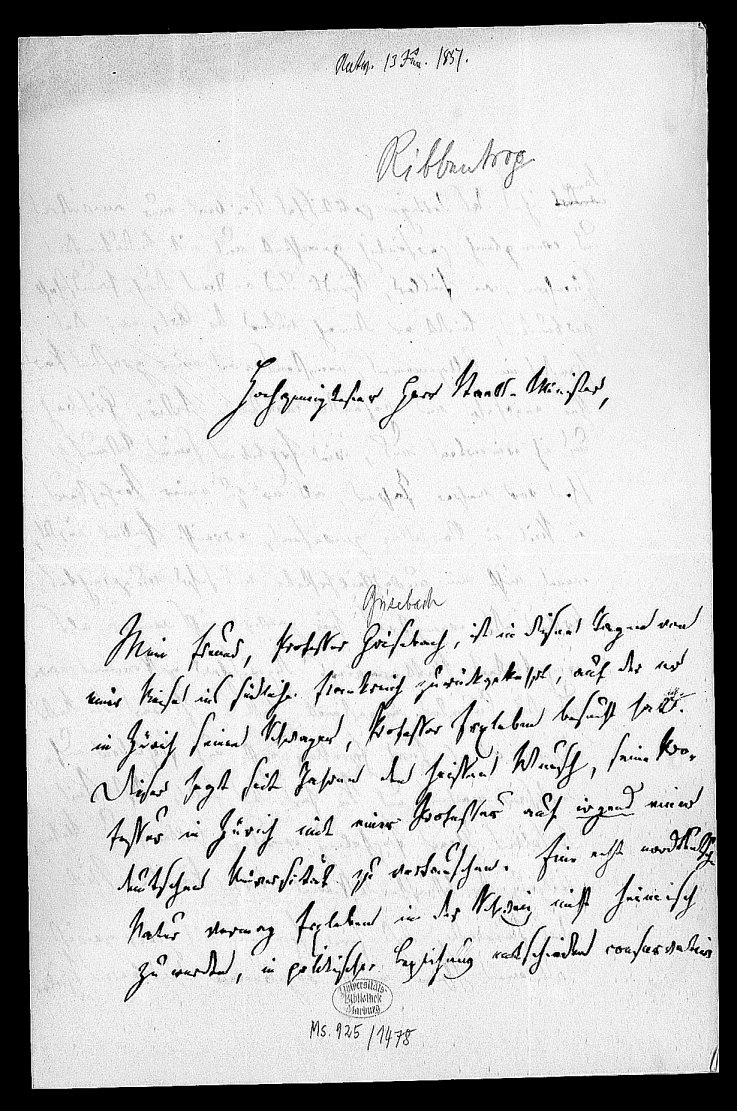 Antw. 13 Jan. 1857.
Ribbentrop
Hochgeneigtester Herr Staats-Minister,
Grisebach
Mein Freund, Professor Grisebach, ist in diesen Tagen von
einer Reise ins südliche Frankreich zurückgekehrt, auf der er
in Zürich seinen Schwager, Professor Erxleben besucht hat.
Dieser hegt seit Jahren den heißen Wunsch, seine Pro-
fessur in Zürich mit einer Professur auf irgend einer
deutschen Universität zu vertauschen. Eine echt norddeutsche
Natur vermag Erxleben in der Schweiz nicht heimisch
zu werden, in politischer Beziehung entschieden conservativ
Universitäts-
Bibliothek
Marburg
Ms. 925/1478